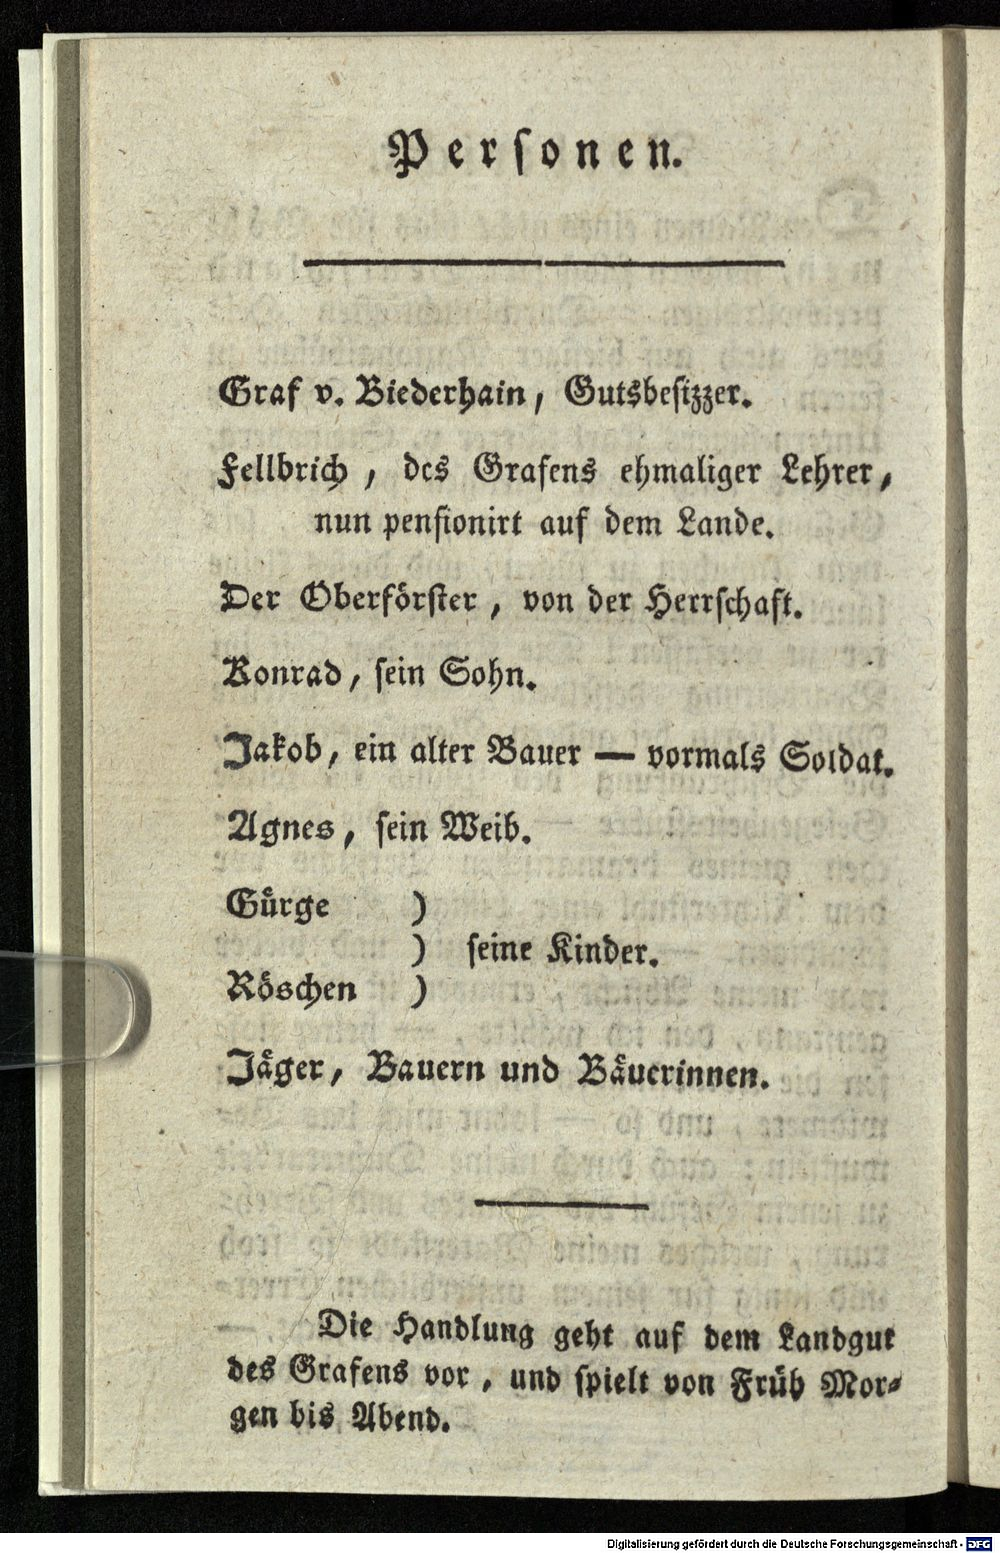 Personen.
Graf v. Biederhain, Gutsbesizzer.
Fellbrich, des Grafens ehmaliger Lehrer,
nun pensionirt auf dem Lande.
Der Oberförster, von der Herrschaft.
Konrad, sein Sohn.
Jakob, ein alter Bauer — vormals Soldat.
Agnes, sein Weib.
Gürge )
) seine Kinder.
Röschen )
Jäger, Bauern und Bäuerinnen.
Die Handlung geht auf dem Landgut
des Grafens vor, und spielt von Früh Mor-
gen bis Abend.
Digitalisierung gefördert durch die Deutsche Forschungsgemeinschaft - DFG